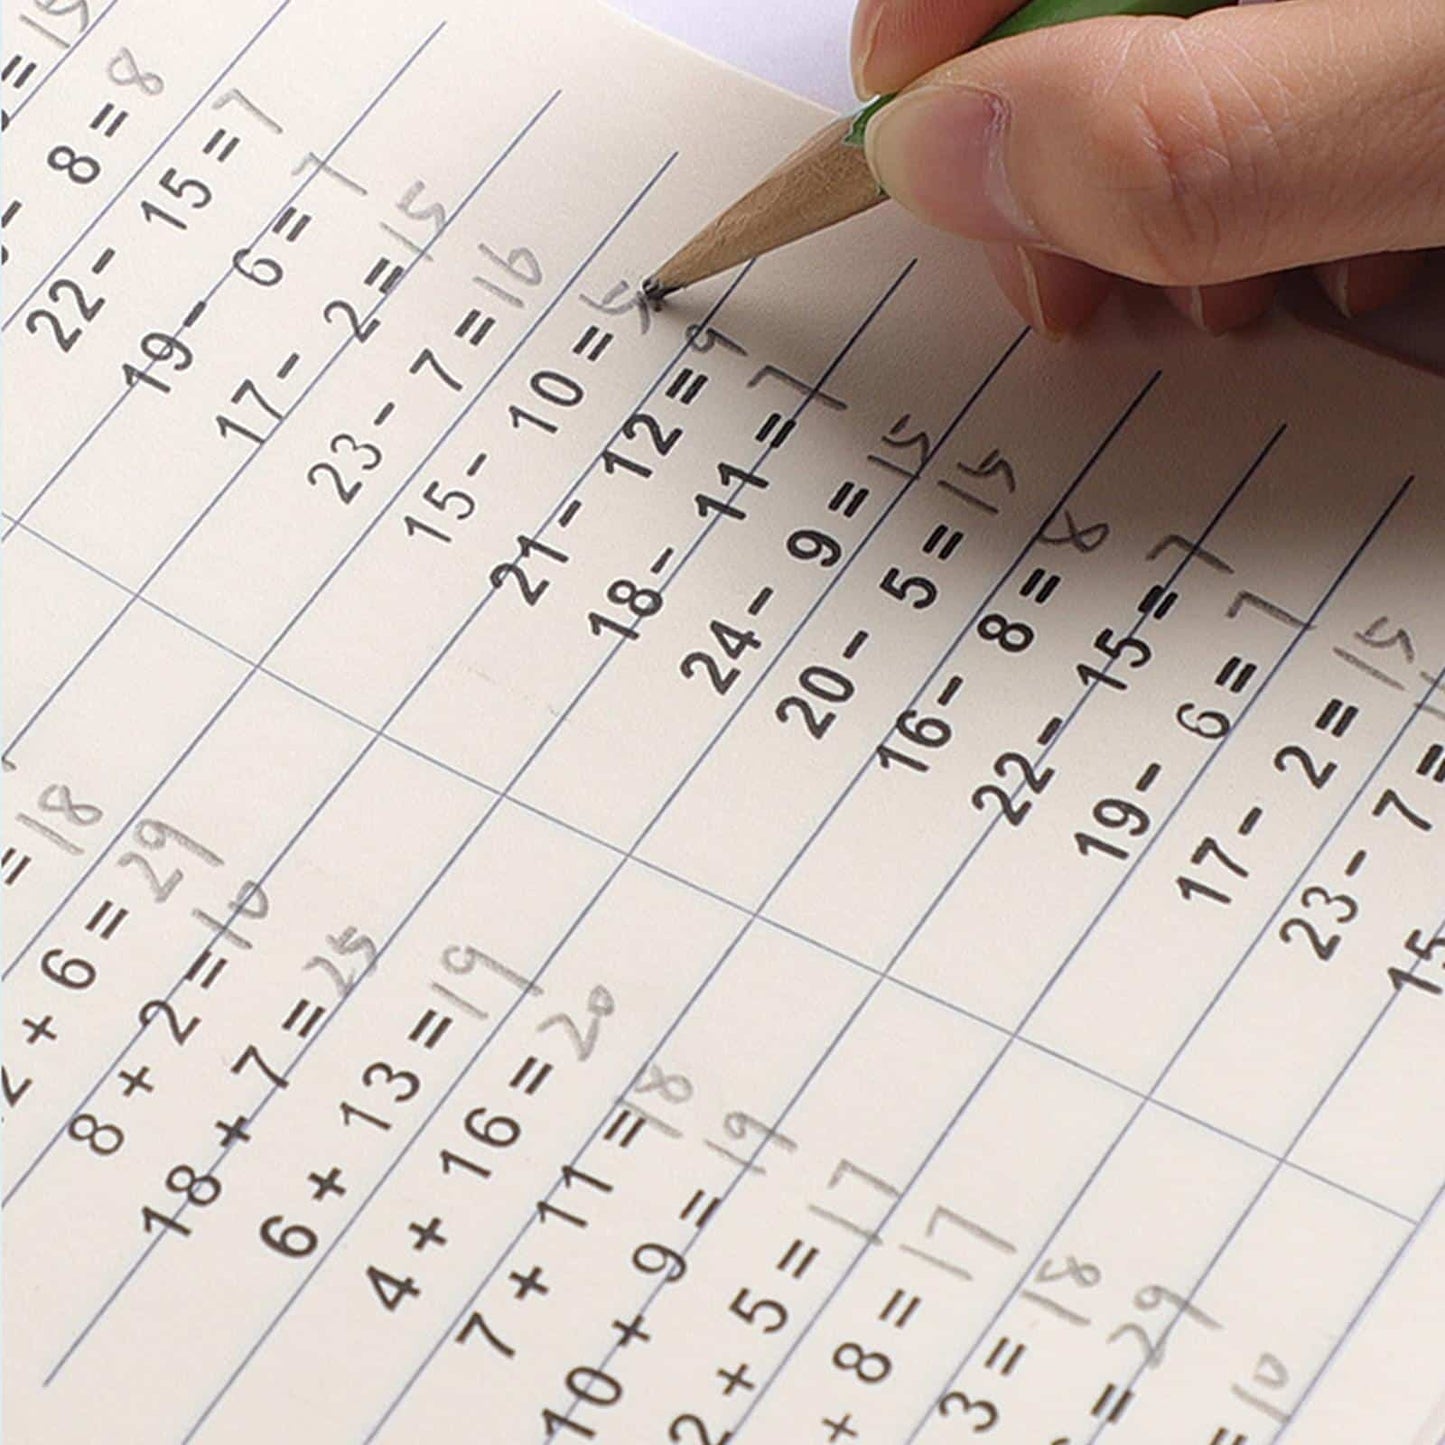 = 15
- 8 = 8
22- 15 = 7
19- 6 = 7
17- 2 = 15
23- 7 = 16
15- 10 =
21- 12 = 9
18- 11 = 7
24- 9 = 15
20- 5 = 15
16- 8 = 8
22- 15 = 7
19- 6 = 7
17- 2 = 15
23- 7 =
15
= 18
2 + 6 = 29
8 + 2 = 10
18 + 7 = 25
6 + 13 = 19
4 + 16 = 20
7 + 11 = 18
10 + 9 = 19
2 + 5 = 17
+ 8 = 17
3 = 18
= 29
= 10